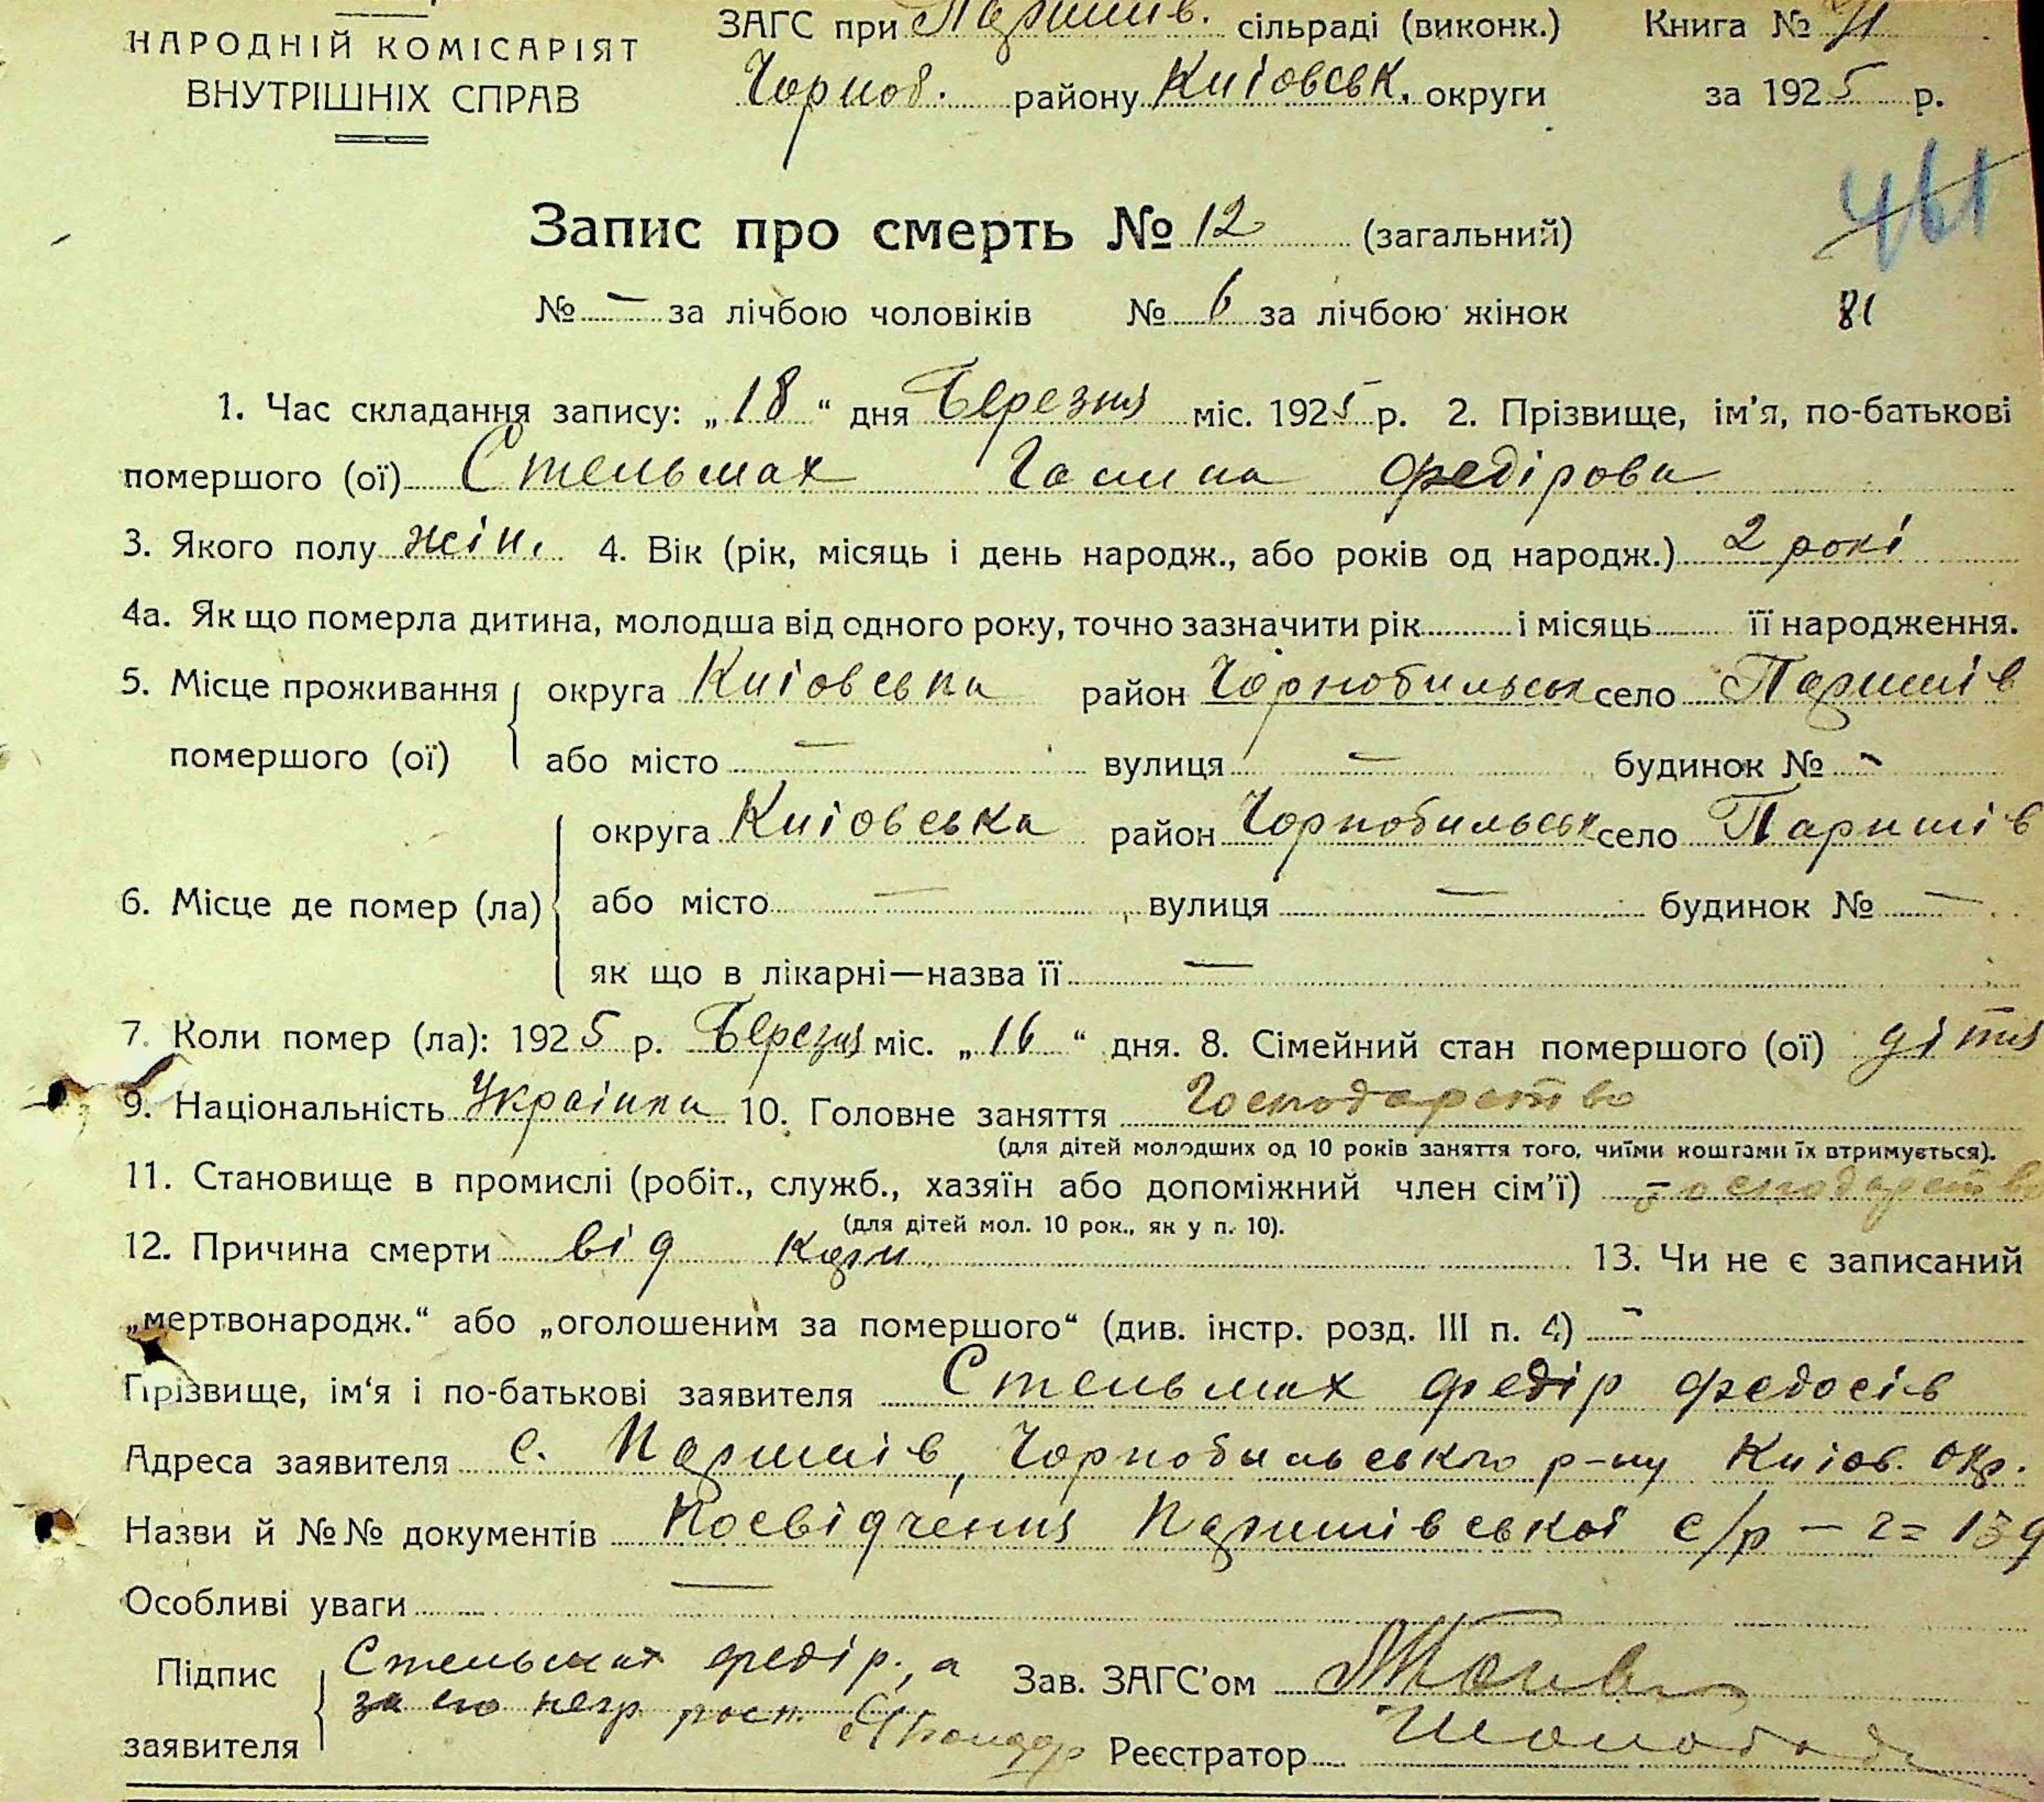 НАРОДНІЙ КОМІСАРІЯТ
ВНУТРІШНІХ СПРАВ
ЗАГС при Паришів. сільраді (виконк.)
Чорноб. району Киіовськ. округи
Книга №
за 1925 р.
461
Запис про смерть № 12 (загальний)
№ — за лічбою чоловіків № 6 за лічбою жінок
81
1. Час складання запису: „18“ дня Березня міс. 1925 р. 2. Прізвище, ім’я, по-батькові
помершого (ої) Стельмах Галина Федірова
3. Якого полу жін. 4. Вік (рік, місяць і день народж., або років од народж.) 2 рокі
4а. Як що померла дитина, молодша від одного року, точно зазначити рік і місяць її народження.
5. Місце проживання округа Киіовська район Чорнобильськ село Паришів
помершого (ої) або місто — вулиця — будинок № -
округа Киіовська район Чорнобильськ село Паришів
6. Місце де помер (ла) або місто — вулиця — будинок № —
як що в лікарні—назва її —
7. Коли помер (ла): 1925 р. Березня міс. „16“ дня. 8. Сімейний стан помершого (ої) дітя
9. Національність Украінка 10. Головне заняття Господарство
(для дітей молодших од 10 років заняття того, чиїми коштами їх втримується).
11. Становище в промислі (робіт., служб., хазяїн або допоміжний член сім’ї) господарство
(для дітей мол. 10 рок., як у п. 10).
12. Причина смерти від кори 13. Чи не є записаний
„мертвонародж.“ або „оголошеним за помершого“ (див. інстр. розд. III п. 4) -
Прізвище, ім‘я і по-батькові заявителя Стельмах Федір Федосів
Адреса заявителя с. Паришів, Чорнобильського р-ну Киіов. Окр.
Назви й №№ документів Посвідчення Паришівської с/р —
Особливі уваги —
Підпис заявителя Стельмах Федір, а
за его негр. росп.
Зав. ЗАГС’ом
Реєстратор